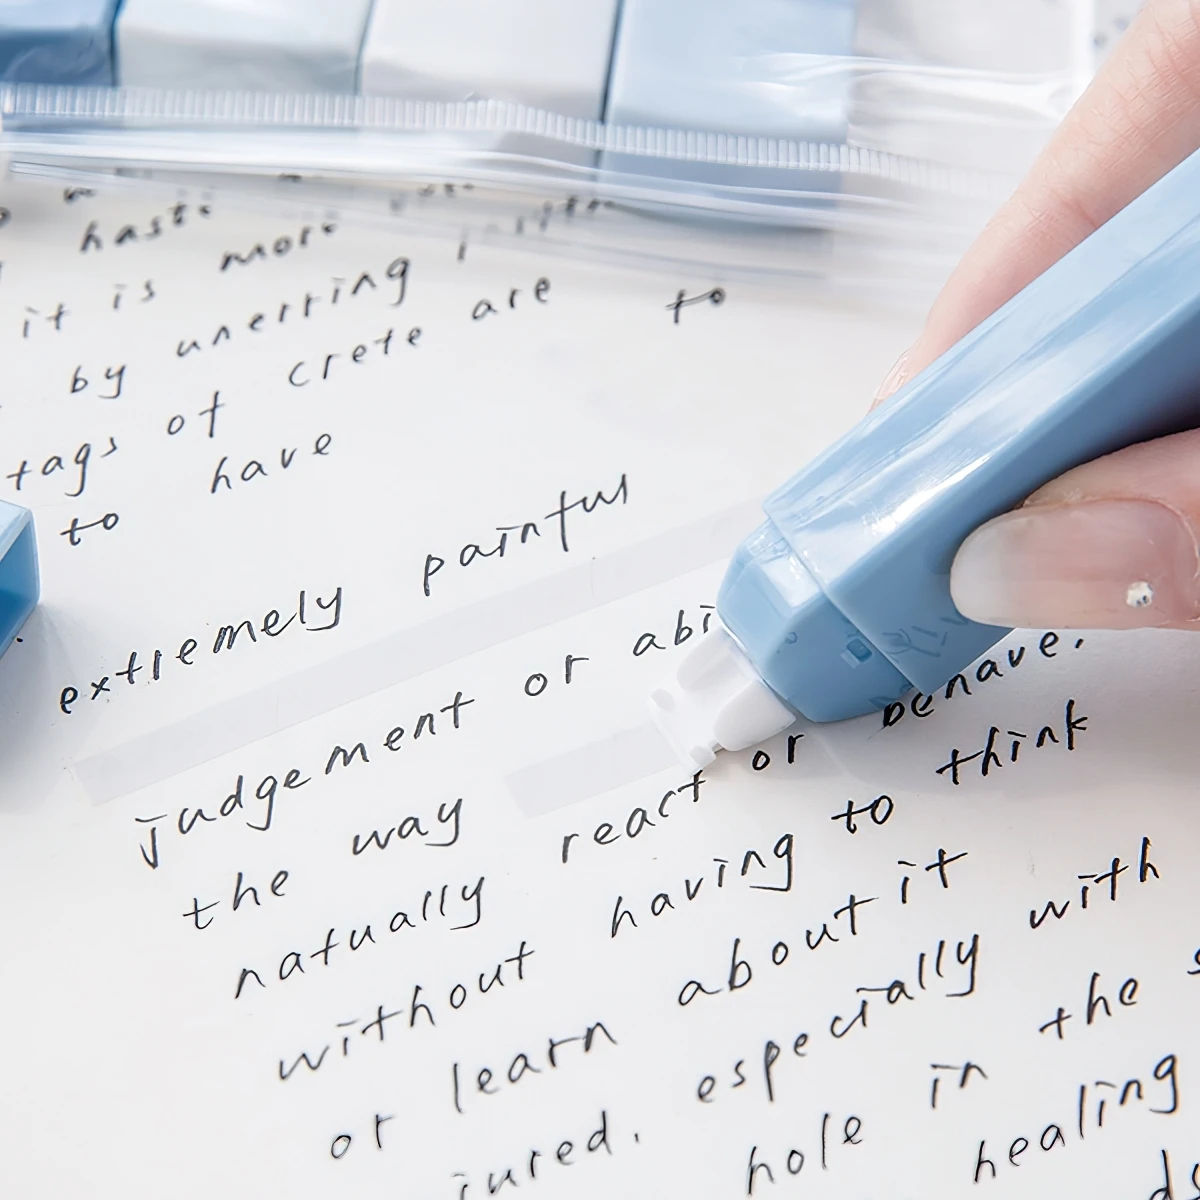 it is more
by unerring
tags of crete are
to have to
extremely painful
judgement or abi
the way
natually react or behave.
without having to think
or learn about it
iured. especially with
hole in the
healing